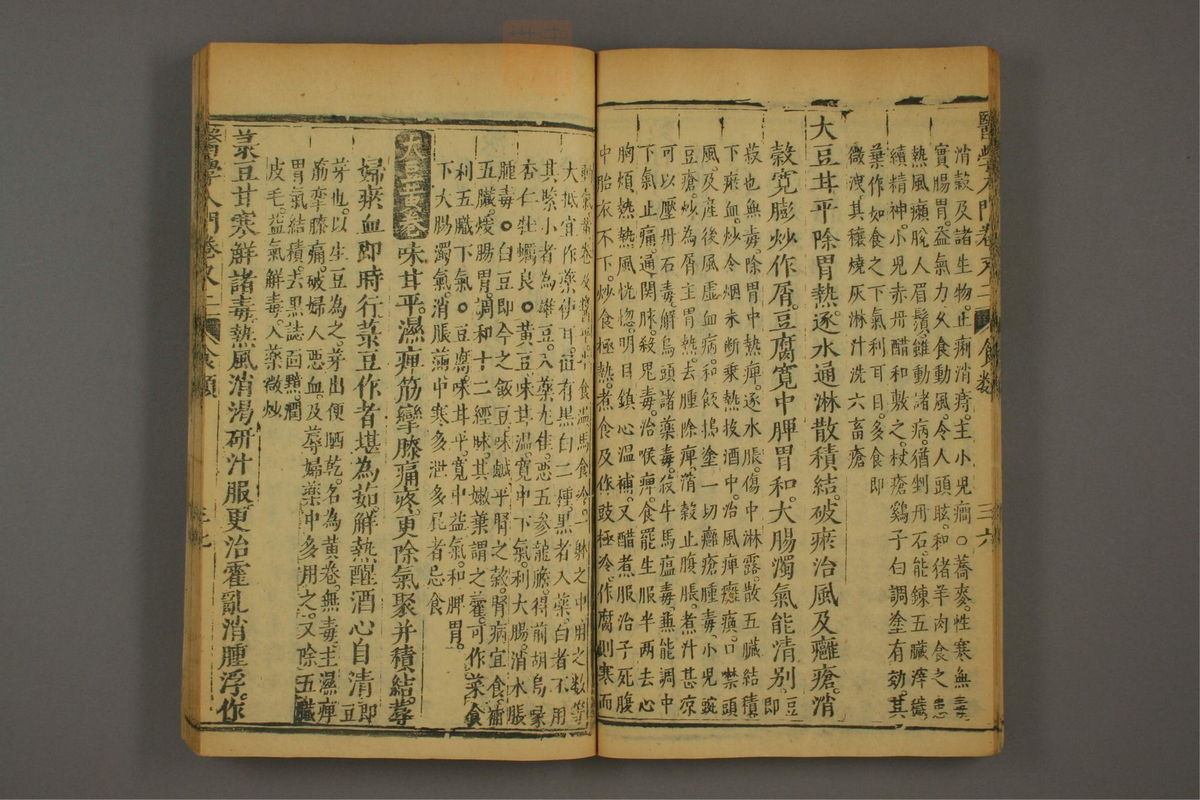 醫學入門卷之二 食類 三六
消穀及諸生物止痢消痔主小兒癇○蕎麥性寒無毒
實腸胃益氣力久食動風令人頭眩和猪羊肉食之患
熱風癩脫人眉鬚雖動諸病猶剉丹石能鍊五臟滓穢
續精神小兒赤丹醋和敷之杖瘡雞子白調塗有効其
葉作如食之下氣利耳目多食即
微洩其穰燒灰淋汁洗六畜瘡
大豆甘平除胃熱逐水通淋散積結破瘀治風及癰瘡消
穀寬膨炒作屑豆腐寬中脾胃和大腸濁氣能清別豆即
菽也無毒除胃中熱痺逐水脹傷中淋露散五臟結積
下瘀血炒令烟未断乘熱投酒中治風痺癱瘓口禁頭
風及産後風虛血病和飯搗塗一切癰瘡腫毒小兒豌
豆瘡炒為屑主胃熱去腫除痺消穀止腹脹煮汁甚凉
可以壓丹石毒解烏頭諸藥毒殺牛馬瘟毒兼能調中
下氣止痛通関脉殺鬼毒治喉痺食罷生服半两去心
胸煩熱熱風恍惚明目鎮心温補又醋煮服治子死腹
中胎衣不下炒食極熱煮食及作豉極冷作腐則寒而
動氣
大抵宜作藥使耳有黑白二種黑者入藥白者不用
其緊小者為雄豆入藥尤佳惡五参龍膽得前胡烏喙
杏仁牡蠣良○黃豆味甘温寬中下氣利大腸消水脹
腫毒○白豆即今之飯豆味鹹平腎之穀腎病宜食補
五臟煖腸胃調和十二經脉其嫩葉謂之藿可作菜食
利五臟下氣○豆腐味甘平寬中益氣和脾胃
下大腸濁氣消脹滿中寒多泄多屁者忌食
大豆黃卷味甘平濕痺筋攣膝痛疼更除氣聚并積結蓐
婦瘀血即時行菉豆作者堪為茹解熱醒酒心自清即豆
芽也以生豆為之芽出便晒乾名為黃卷無毒主濕痺
筋攣膝痛破婦人惡血及蓐婦藥中多用之又除五臟
胃氣結積去黑誌面䵟潤
皮毛益氣解毒入藥微炒
菉豆甘寒解諸毒熱風消渴研汁服更治霍亂消腫浮作
醫學入門卷之二 食類 三七